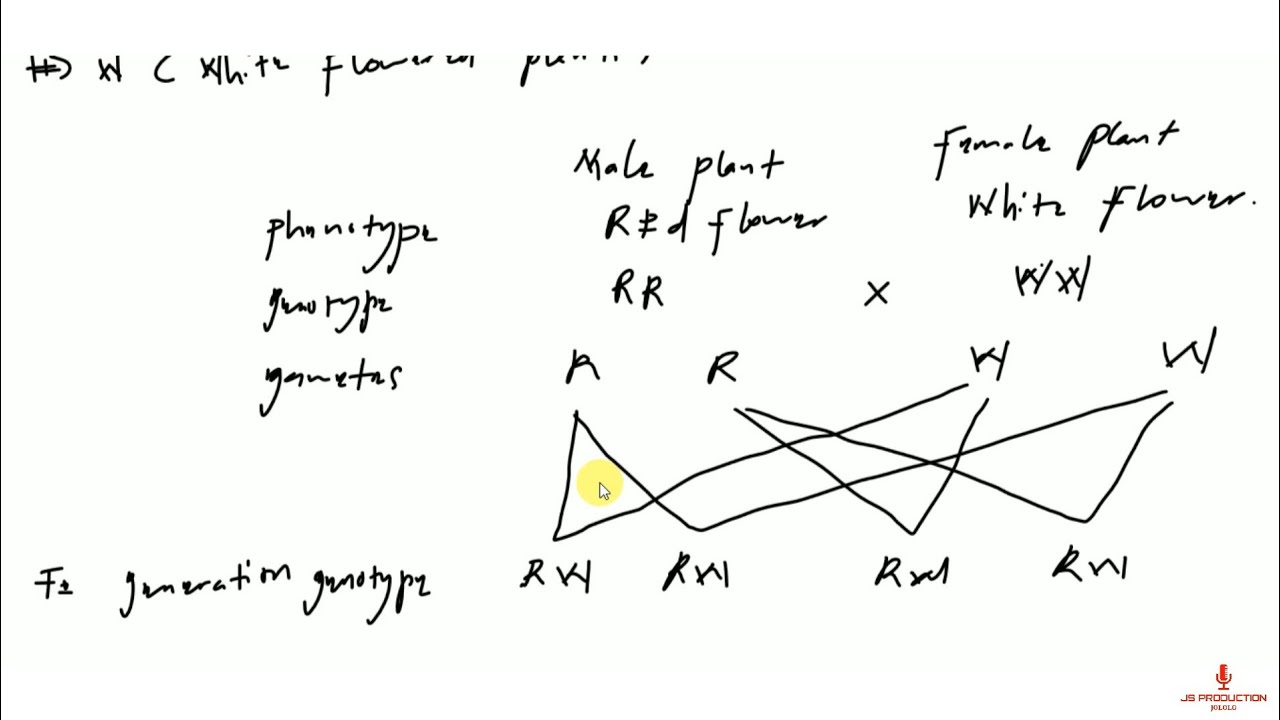 ⇒ W ( White flowered plant )
Male plant Female plant
phenotype Red flower White flower.
genotype RR × WW
gametes R R W W
F1 generation genotype RW RW RW RW
JS PRODUCTION
JOLOLO